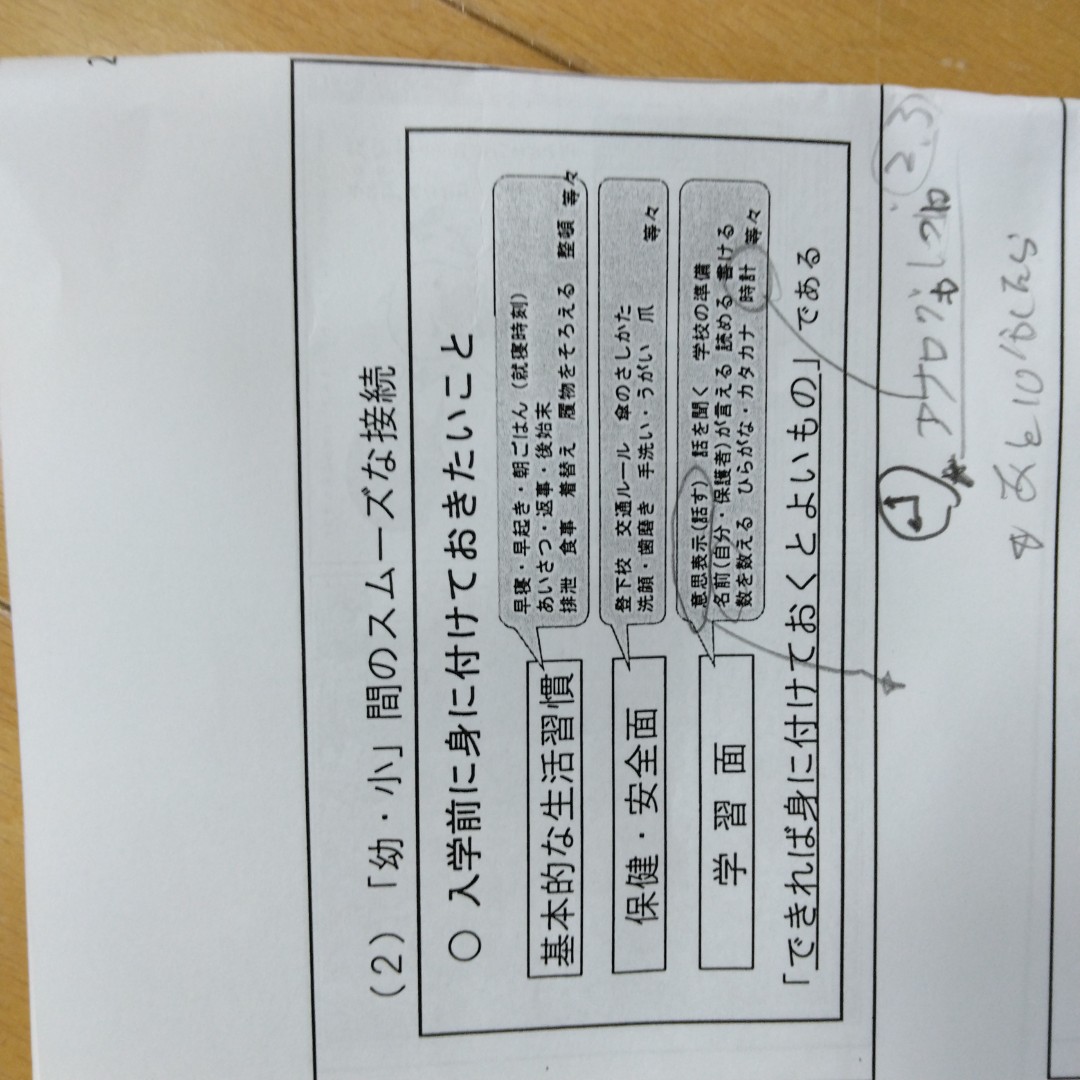 （２）「幼・小」間のスムーズな接続
○ 入学前に身に付けておきたいこと
基本的な生活習慣
早寝・早起き・朝ごはん（就寝時刻）
あいさつ・返事・後始末
排泄 食事 着替え 履物をそろえる 整頓 等々
保健・安全面
登下校 交通ルール 傘のさしかた
洗顔・歯磨き 手洗い・うがい 爪 等々
学習面
意思表示（話す） 話を聞く 学校の準備
名前（自分・保護者）が言える 読める 書ける
数を数える ひらがな・カタカナ 時計 等々
「できれば身に付けておくとよいもの」である
2.3
あと10分したら
2